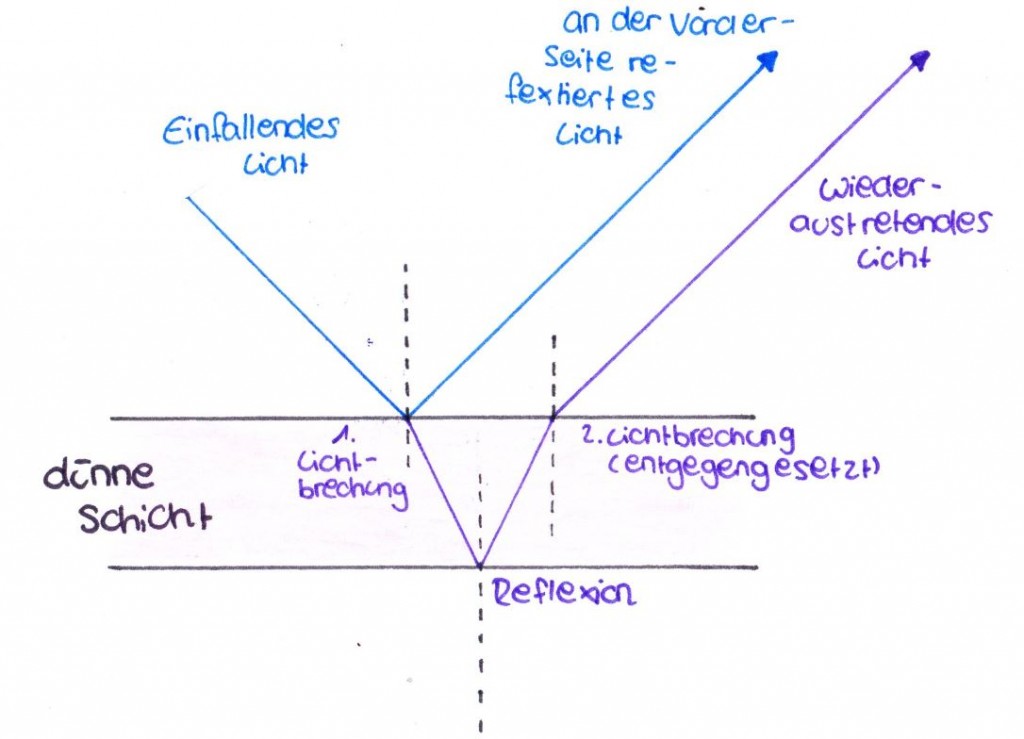 an der Vorder-
seite re-
fektiertes
Licht
Einfallendes
Licht
wieder-
austretendes
Licht
1.
Licht-
brechung
2. Lichtbrechung
(entgegengesetzt)
dünne
Schicht
Reflexion